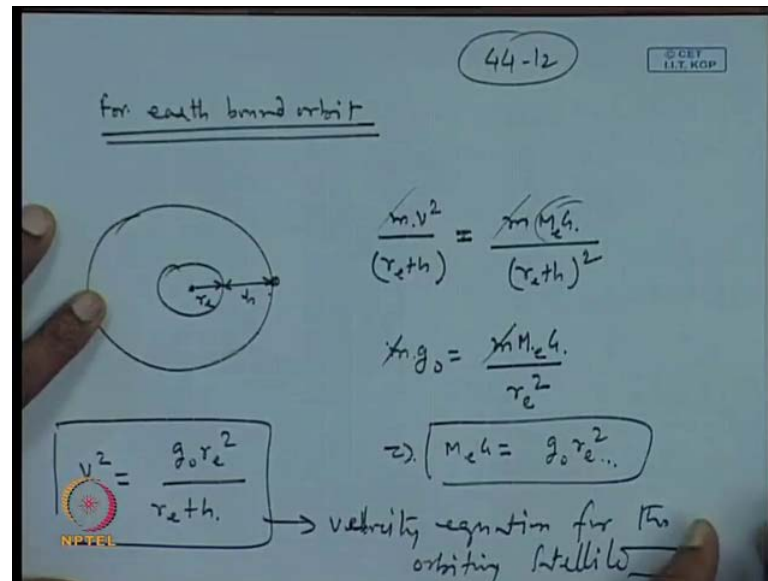 44-12
© CET
I.I.T. KGP
For earth bound orbit
m.v² / (rₑ+h) = m Mₑ G. / (rₑ+h)²
rₑ
h
m.g₀ = m Mₑ G. / rₑ²
v² = g₀ rₑ² / rₑ+h.
=>. Mₑ G = g₀ rₑ²...
→ velocity equation for the
orbiting Satellite
NPTEL